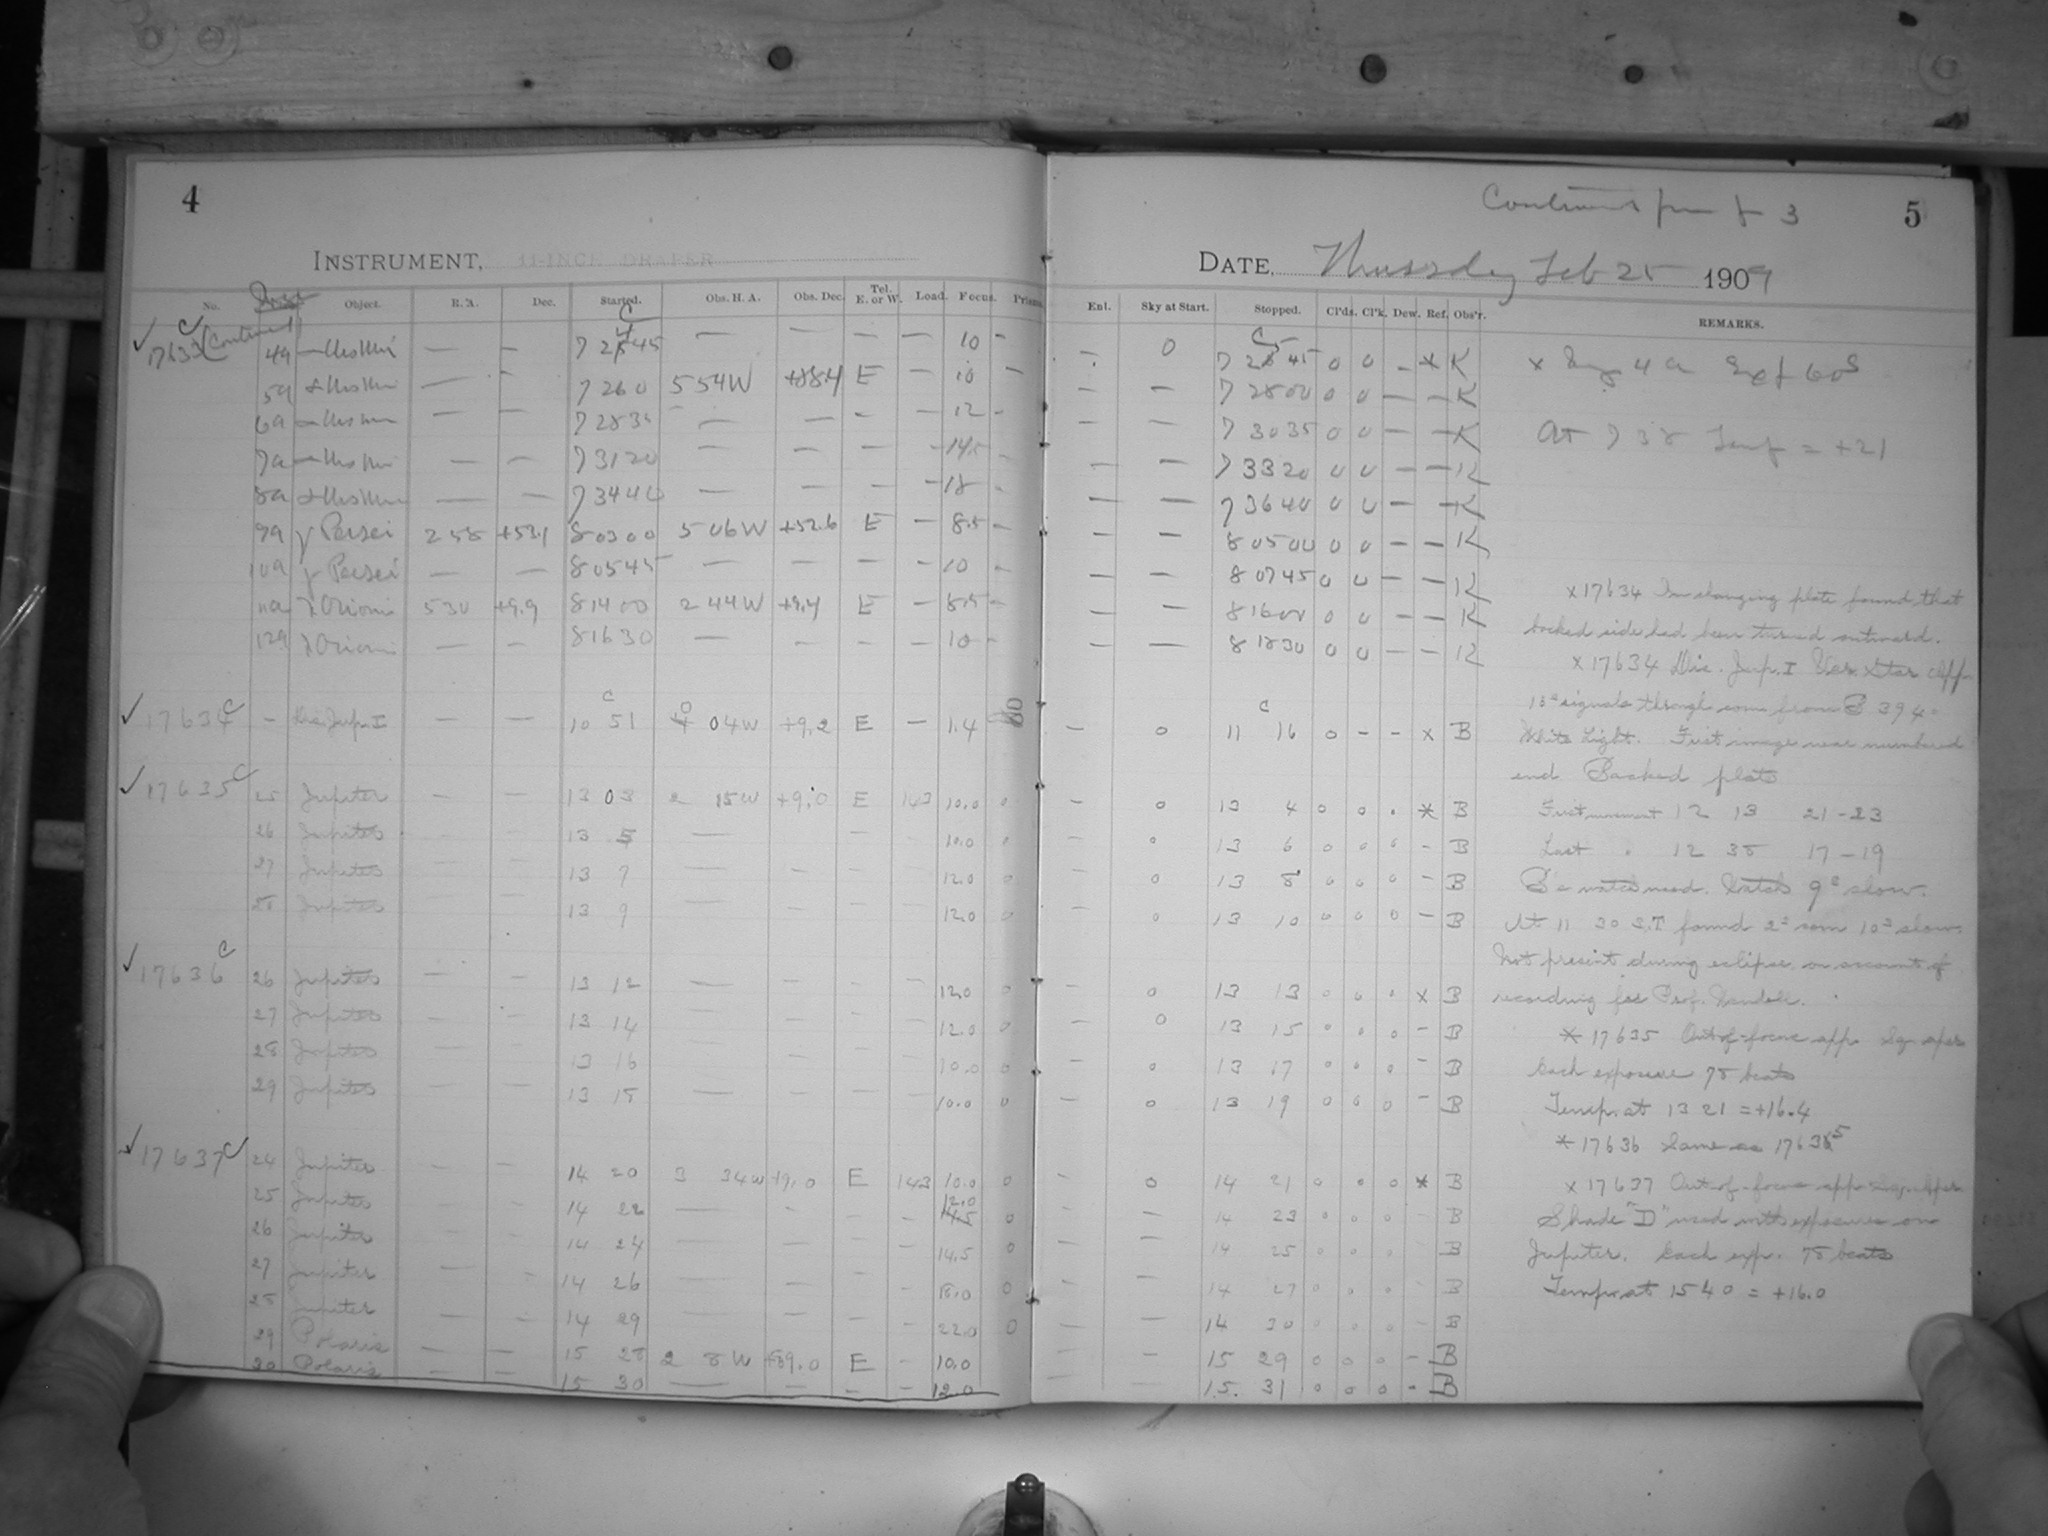 4
INSTRUMENT, 11-INCH DRAPER
No. Object. R.A. Dec. Started. Obs. H. A. Obs. Dec. Tel. E. or W. Load. Focus. Prisms.
17633 (Continued) 4a — — 10 —
5a — — 7 26 0 5 54 W +88.4 E — 10 —
6a — — 7 28 35 — — — — 12 —
7a — — 7 31 20 — — — — 14.5 —
8a — — 7 34 40 — — — — 18 —
9a γ Persei 2 58 +53.1 8 03 00 5 06 W +52.6 E — 8.5 —
10a γ Persei — — 8 05 45 — — — — 10 —
11a λ Orionis 5 30 +9.9 8 14 00 2 44 W +9.4 E — 8.5 —
12a λ Orionis — — 8 16 30 — — — — 10 —
17634 c — Dis. Jup. I — — 10 51 0 04 W +9.2 E — 1.4 —
17635 c 25 Jupiter — — 13 03 2 15 W +9.0 E 143 10.0 0
26 Jupiter 13 5 — — 10.0 0
27 Jupiter — — 13 7 — — — 12.0 0
28 Jupiter — — 13 9 — — — 12.0 0
17636 c 26 Jupiter — — 13 12 — — — 12.0 0
27 Jupiter — — 13 14 — — — 12.0 0
28 Jupiter — — 13 16 — — — 10.0 0
29 Jupiter — — 13 18 — — — 10.0 0
17637 c 24 Jupiter — — 14 20 3 34 W +9.0 E 143 10.0 0
25 Jupiter — — 14 22 — — — — 12.0 0
26 Jupiter — — 14 24 — — — — 14.5 0
27 Jupiter — — 14 26 — — — — 18.0 0
28 Jupiter — — 14 29 — — — — 22.0 0
29 Polaris — — 15 28 2 8 W +89.0 E — 10.0
30 Polaris — — 15 30 — — — — 12.0
Continued from p 3
5
DATE, Thursday Feb 25 1909
Enl. Sky at Start. Stopped. Cl'ds. Cl'k. Dew. Ref. Obs'r. REMARKS.
— 0 0 0 — x K
— — 7 28 00 0 0 — — K
— — 7 30 35 0 0 — — K
— — 7 33 20 0 0 — — K
— — 7 36 40 0 0 — — K
— — 8 05 00 0 0 — — K
— — 8 07 45 0 0 — — K
— — 8 16 00 0 0 — — K
— — 8 18 30 0 0 — — K
— 0 11 16 0 — — x B
— 0 13 4 0 0 . * B
0 13 6 0 0 0 — B
0 13 8 0 0 0 — B
— 0 13 10 0 0 0 — B
— 0 13 13 0 0 . x B
— 0 13 15 0 0 0 — B
0 13 17 0 0 0 — B
— 0 13 19 0 0 0 — B
— 0 14 21 0 0 0 * B
— — 14 23 0 0 0 B
14 25 0 0 0 B
— — 14 27 0 0 0 B
— — 14 30 0 0 0 B
— — 15 29 0 0 0 — B
— — 15 31 0 0 0 — B
x 4 a Exp 60s
At 7 38 Temp = +21
x 17634 In changing plate found that
backed side had been turned outward.
x 17634 Dis. Jup. I Var. Star app.
10s signals through from B 394.
White Light. First image near numbered
end Backed plate
First movement 12 13 21-23
Last " 12 38 17-19
B's watch used. Watch 9s slow.
At 11 30 S.T found 2s com 10s slow.
Not present during eclipse on account of
recording for Prof. Wendell.
* 17635 Out-of-focus app. Sq. aper
Each exposure 78 beats
Temp. at 13 21 = +16.4
* 17636 Same as 17635
x 17637 Out-of-focus app. Sq. aper
Shade "D" used with exposures on
Jupiter. Each exp. 78 beats
Temp. at 15 40 = +16.0